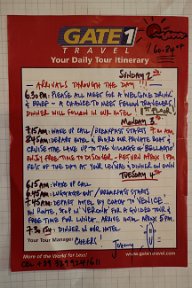 GATE 1
TRAVEL
Your Daily Tour Itinerary
SUNDAY 2nd
ARRIVALS THROUGH THE DAY!!!
6.30PM: PLEASE ALL MEET FOR A WELCOME DRINK
& BRIEF - A CHANCE TO MEET FELLOW TRAVELERS/
DINNER WILL FOLLOW IN OUR HOTEL
MONDAY 3rd
7.15AM: WAKE UP CALL/BREAKFAST STARTS 7.00AM
8.45AM: DEPART HOTEL & BOARD OUR PRIVATE BOAT &
CRUISE THE LAKE UP TO THE VILLAGE OF BELLAGIO
FREE TIME TO DISCOVER - RETURN
REST OF THE DAY AT YOUR LEISURE & DINNER IN OWN
TUESDAY 4th
6.15AM: WAKE UP CALL
6.45AM: LUGGAGE OUT/BREAKFAST STARTS
7.45AM: DEPART HOTEL BY COACH TO VENICE
EN ROUTE, STOP IN VERONA FOR A GUIDED TOUR &
FREE TIME FOR LUNCH. ARRIVE HOTEL APPROX 5PM
7.30PM: DINNER IN OUR HOTEL
Your Tour Manager
CHEERS!
Jeremy
More of the World for Less!
www.gate1travel.com